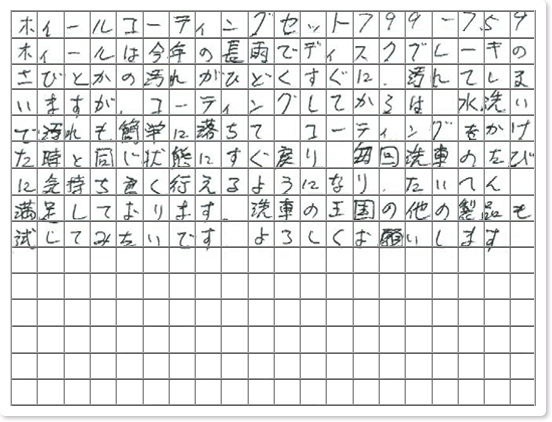 ホイールコーティングセット799-759
ホイールは今年の長雨でディスクブレーキの
さびとかの汚れがひどくすぐに、汚れてしま
いますが、コーティングしてからは 水洗い
で汚れも簡単に落ちて コーティングをかけ
た時と同じ状態にすぐ戻り 毎回洗車のたび
に気持ち良く行えるようになり、たいへん
満足しております。洗車の王国の他の製品も
試してみたいです よろしくお願いします